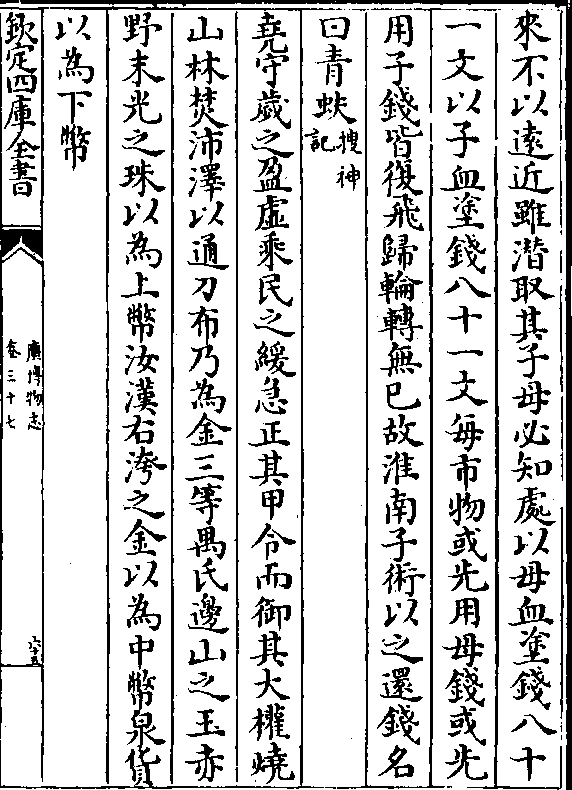 來不以遠近雖潛取其子母必知處以母血塗錢八十
一文以子血塗錢八十一文每市物或先用母錢或先
用子錢皆復飛歸輪轉無已故淮南子術以之還錢名
曰青蚨搜神記
堯守歲之盈虛乘民之緩急正其甲令而御其大權燒
山林焚沛澤以通刀布乃為金三等禺氏邊山之玉赤
野末光之珠以為上幣汝漢右洿之金以為中幣泉貨
以為下幣
欽定四庫全書
廣博物志
卷三十七